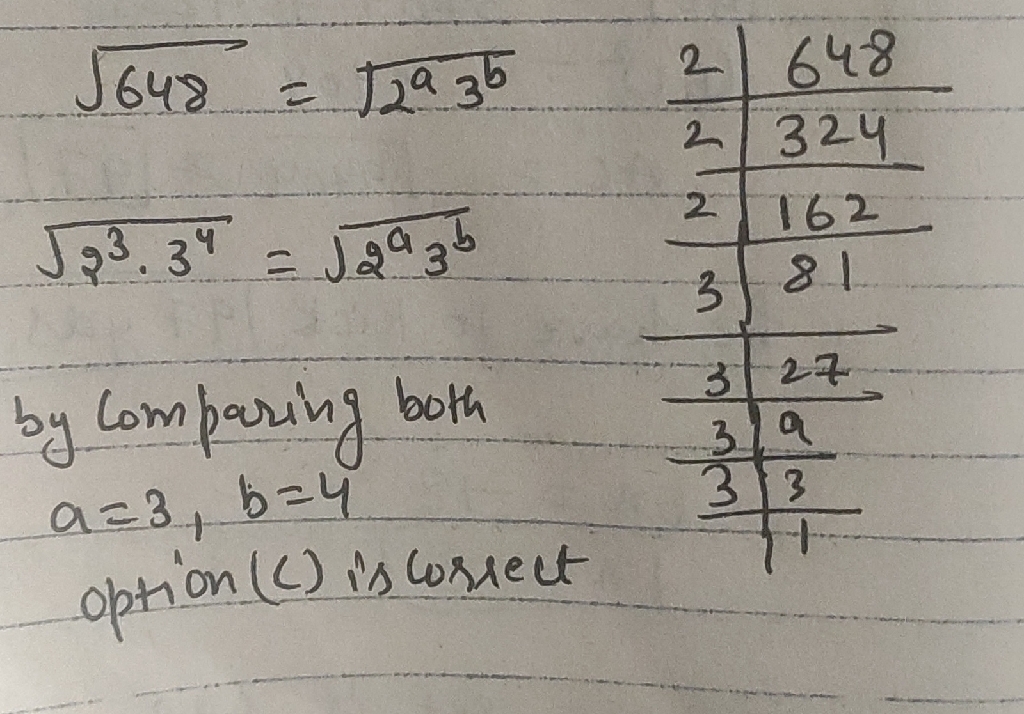 √648 = √2ᵃ 3ᵇ
√2³. 3⁴ = √2ᵃ 3ᵇ
by Comparing both
a=3, b=4
option (C) is Correct
2 | 648
2 | 324
2 | 162
3 | 81
3 | 27
3 | 9
3 | 3
| 1